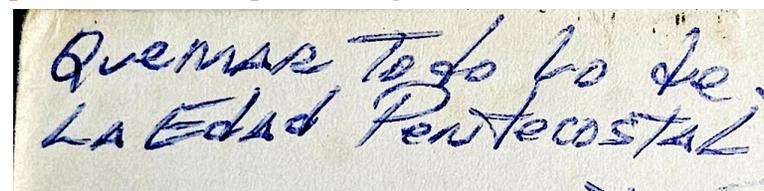 Quemar Todo Lo de.
LA Edad Pentecostal